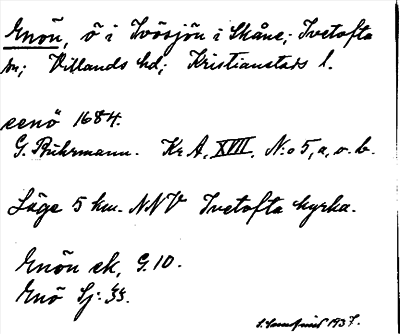 Enön, ö i Ivösjön i Skåne; Ivetofta
sn; Villands hd; Kristianstads l.
eenö 1684.
G. Buhrmann. Kr A, XVIII, N:o 5, a, o. b.
Läge 5 km. NNV Ivetofta kyrka.
Enön ek, G. 10.
Enö Sj: 33.
1937.